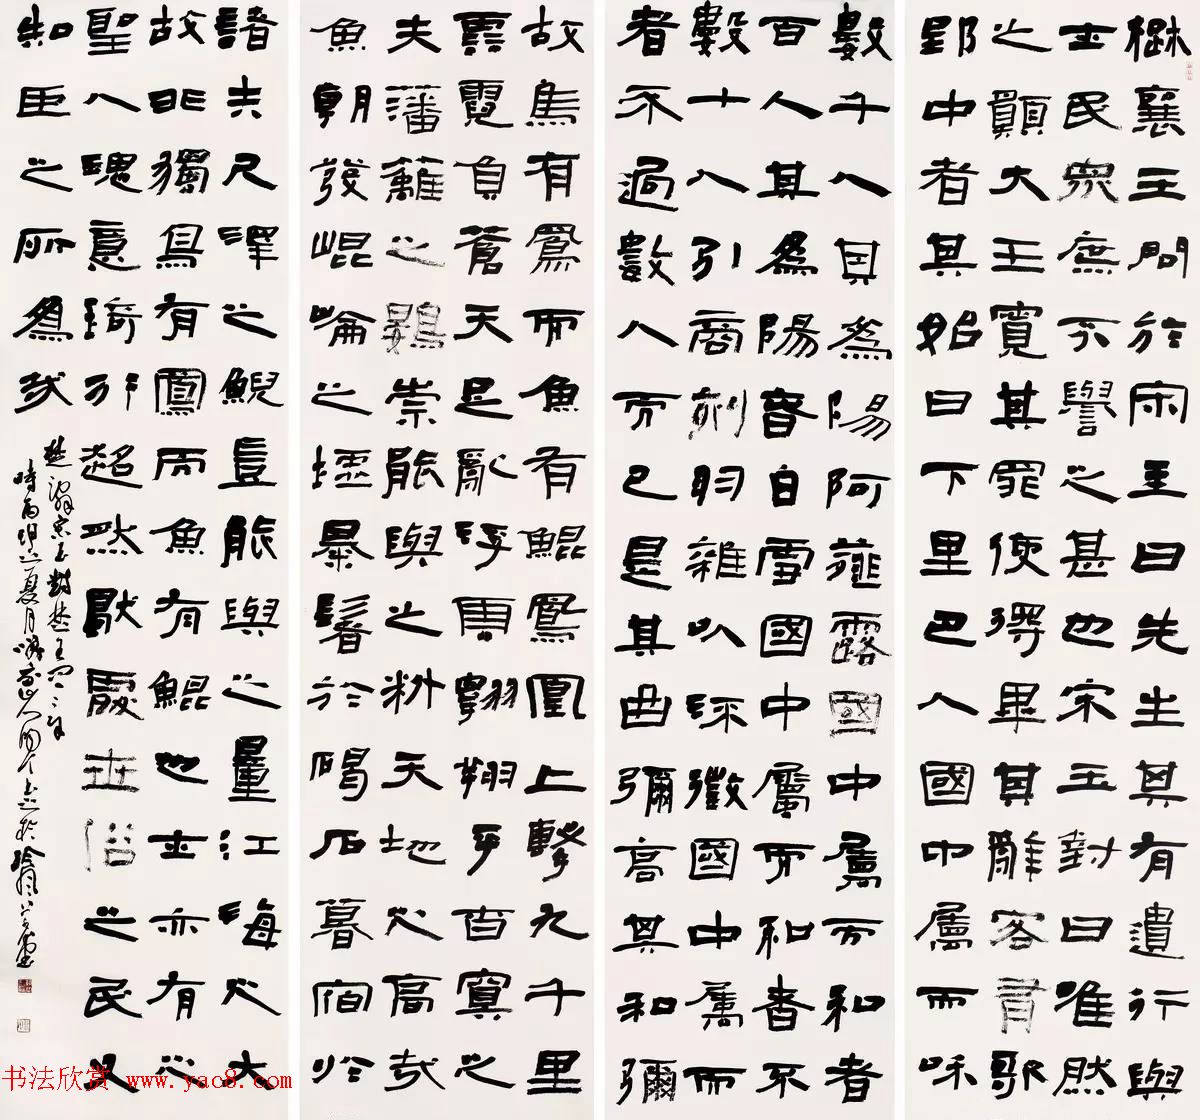 楚襄王問於宋玉曰先生其有遺行與
士民衆庶不譽之甚也宋玉對曰唯然
之願大王寬其罪使得畢其辭客有歌
郢中者其始曰下里巴人國中屬而和
數千人其爲陽阿薤露國中屬而和者
百人其爲陽春白雪國中屬而和者不
數十人引商刻羽雜以流徵國中屬而
者不過數人而已是其曲彌高其和彌
故鳥有鳳而魚有鯤鳳凰上擊九千里
雲霓負蒼天足亂浮雲翱翔乎杳冥之
夫藩籬之鷃豈能與之料天地之高哉
魚朝發崐崘之墟暴鬐於碣石暮宿於
諸夫尺澤之鯢豈能與之量江海之大
故非獨鳥有鳳而魚有鯤也士亦有之
聖人瑰意琦行超然獨處世俗之民又
知臣之所爲哉
楚辭宋玉對楚王問
書法欣赏 www.yac8.com